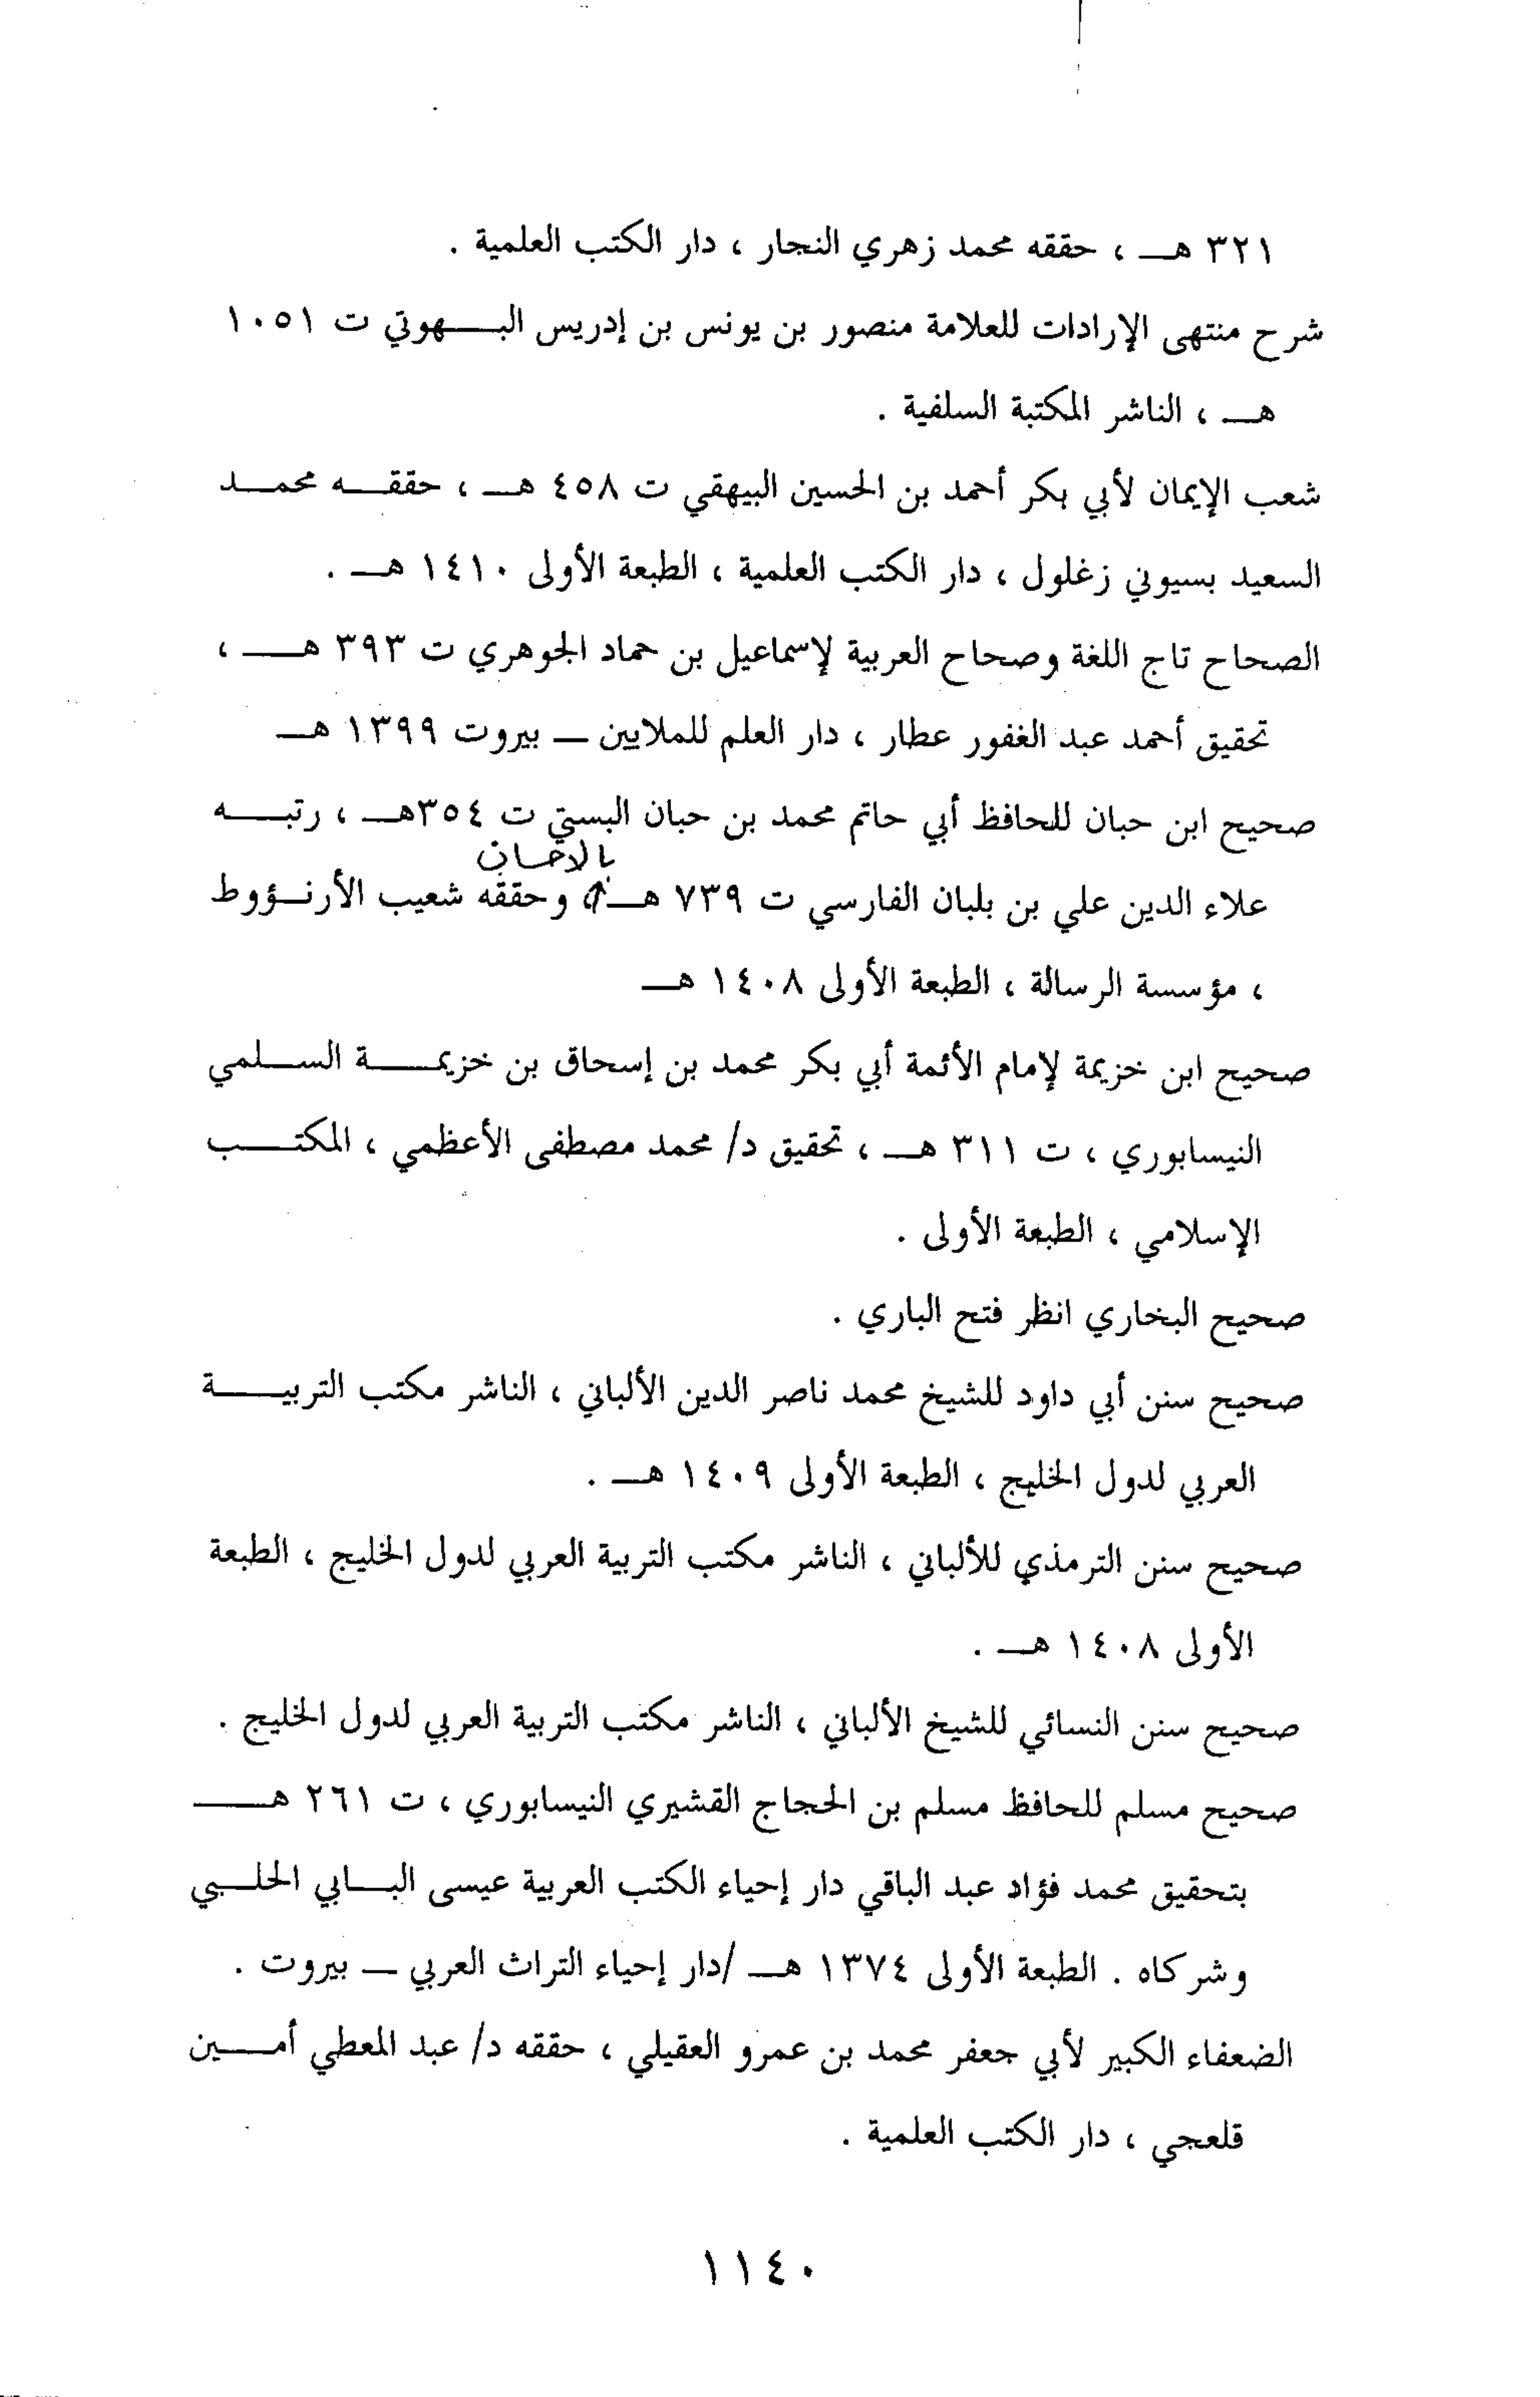 ٣٢١ هـ ، حققه محمد زهري النجار ، دار الكتب العلمية .
شرح منتهى الإرادات للعلامة منصور بن يونس بن إدريس البهوتي ت ١٠٥١
هـ ، الناشر المكتبة السلفية .
شعب الإيمان لأبي بكر أحمد بن الحسين البيهقي ت ٤٥٨ هـ ، حققه محمد
السعيد بسيوني زغلول ، دار الكتب العلمية ، الطبعة الأولى ١٤١٠ هـ .
الصحاح تاج اللغة وصحاح العربية لإسماعيل بن حماد الجوهري ت ٣٩٣ هـ ،
تحقيق أحمد عبد الغفور عطار ، دار العلم للملايين ـ بيروت ١٣٩٩ هـ
صحيح ابن حبان للحافظ أبي حاتم محمد بن حبان البستي ت ٣٥٤هـ ، رتبه
بالاحسان
علاء الدين علي بن بلبان الفارسي ت ٧٣٩ هـ وحققه شعيب الأرنؤوط
، مؤسسة الرسالة ، الطبعة الأولى ١٤٠٨ هـ
صحيح ابن خزيمة لإمام الأئمة أبي بكر محمد بن إسحاق بن خزيمة السلمي
النيسابوري ، ت ٣١١ هـ ، تحقيق د/ محمد مصطفى الأعظمي ، المكتب
الإسلامي ، الطبعة الأولى .
صحيح البخاري انظر فتح الباري .
صحيح سنن أبي داود للشيخ محمد ناصر الدين الألباني ، الناشر مكتب التربية
العربي لدول الخليج ، الطبعة الأولى ١٤٠٩ هـ .
صحيح سنن الترمذي للألباني ، الناشر مكتب التربية العربي لدول الخليج ، الطبعة
الأولى ١٤٠٨ هـ .
صحيح سنن النسائي للشيخ الألباني ، الناشر مكتب التربية العربي لدول الخليج .
صحيح مسلم للحافظ مسلم بن الحجاج القشيري النيسابوري ، ت ٢٦١ هـ
بتحقيق محمد فؤاد عبد الباقي دار إحياء الكتب العربية عيسى البابي الحلبي
وشركاه . الطبعة الأولى ١٣٧٤ هـ /دار إحياء التراث العربي ـ بيروت .
الضعفاء الكبير لأبي جعفر محمد بن عمرو العقيلي ، حققه د/ عبد المعطي أمين
قلعجي ، دار الكتب العلمية .
١١٤٠